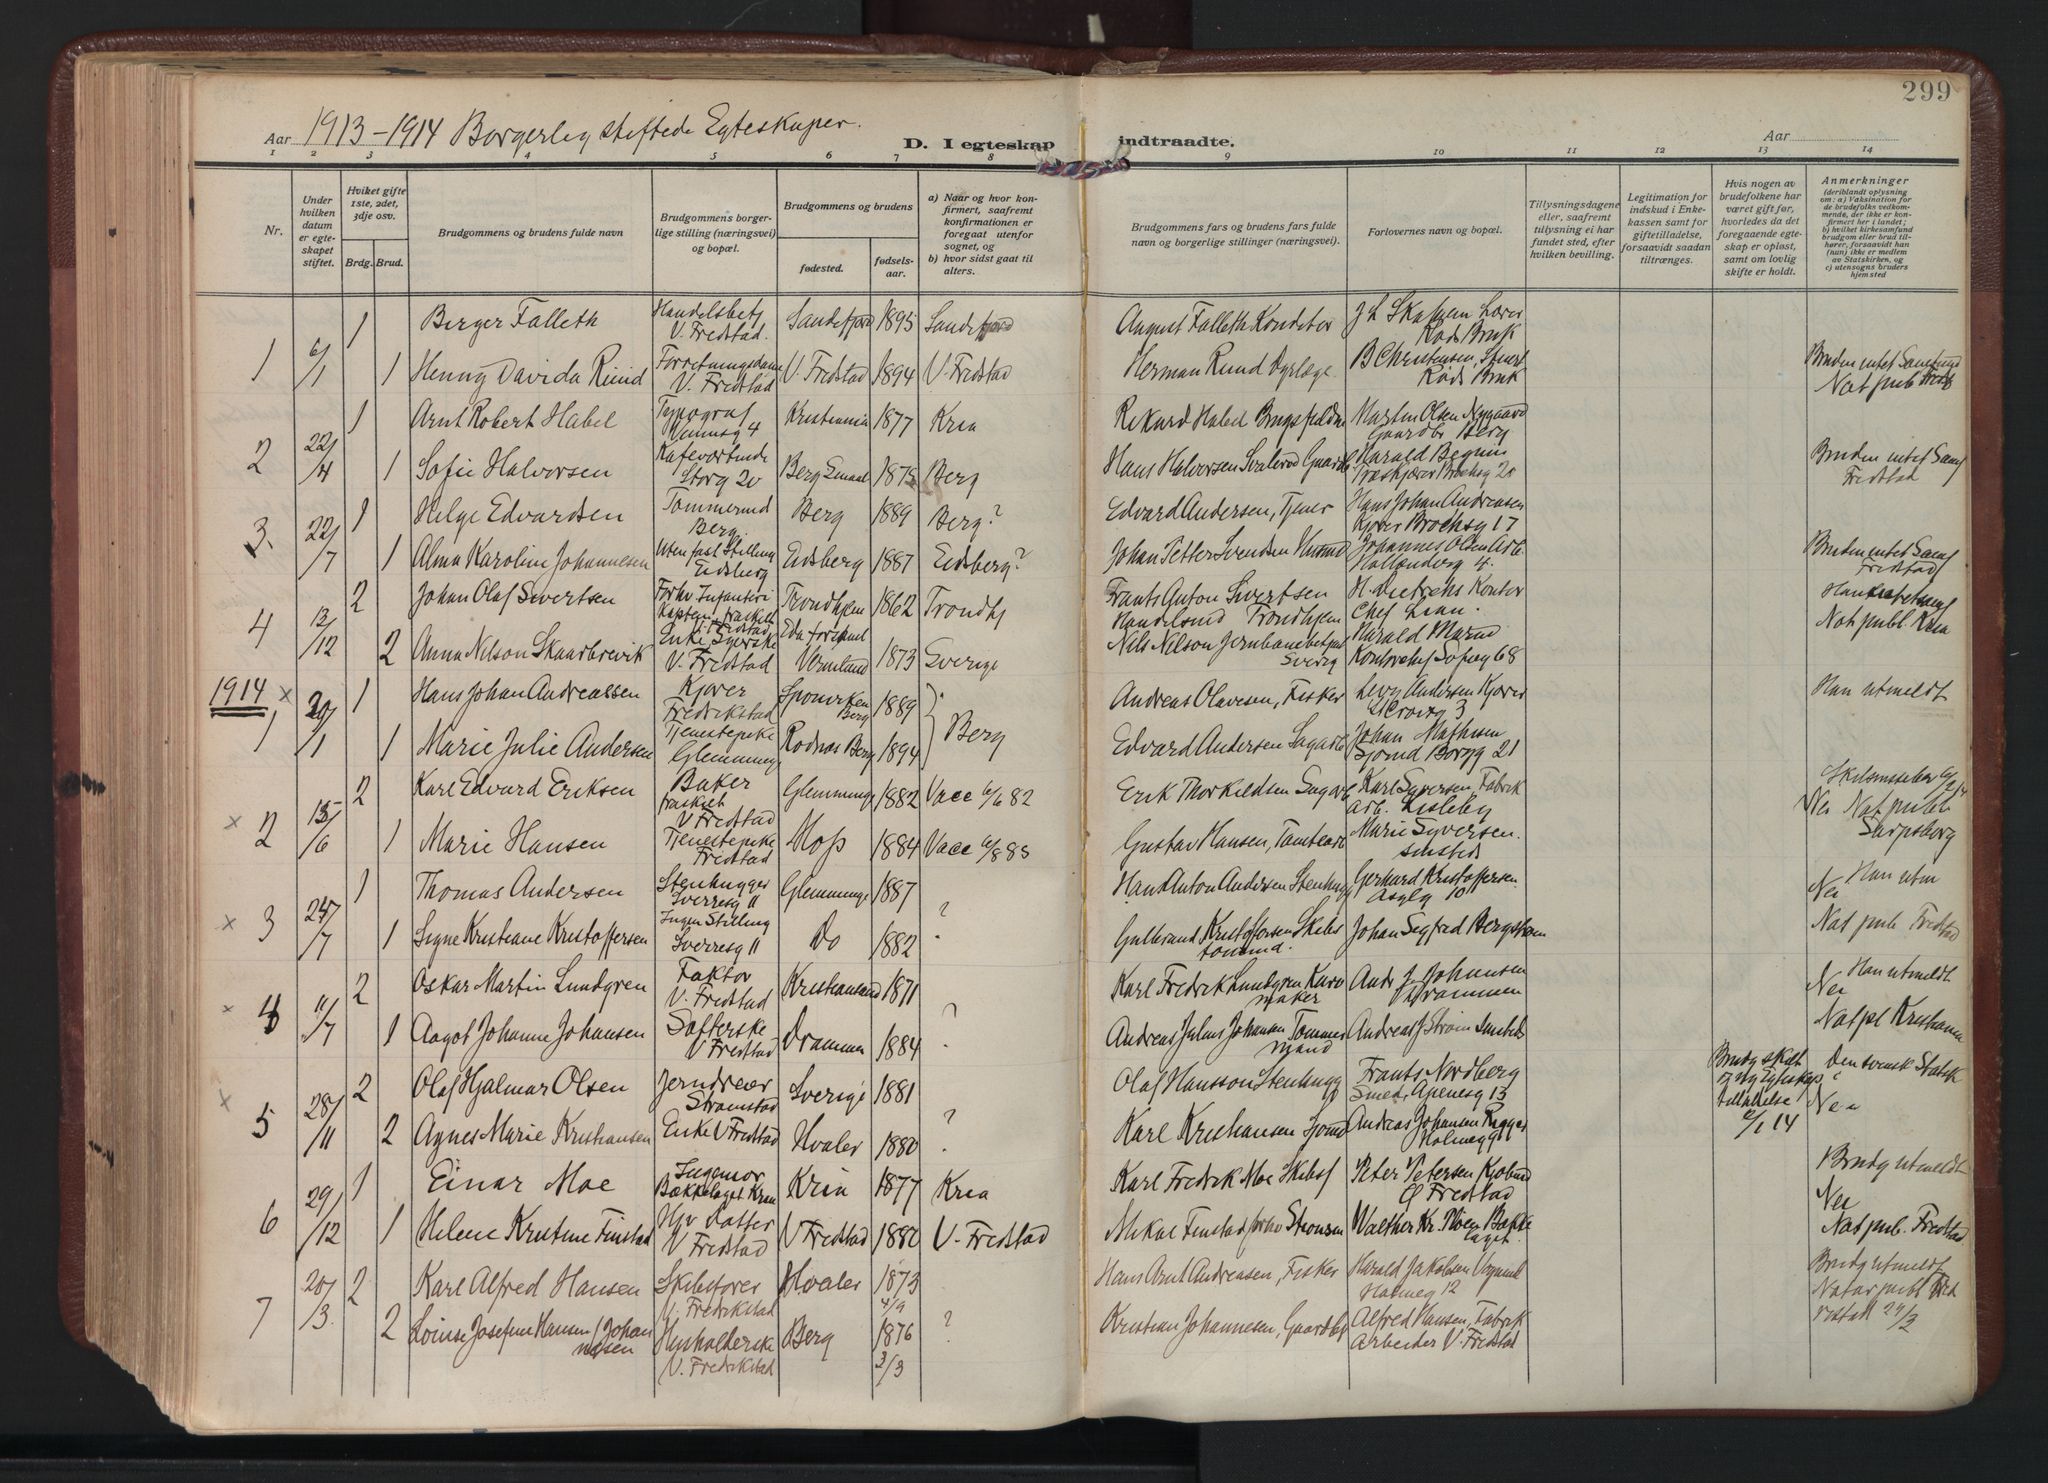 299
Aar 1913-1914 Borgerlig stiftede Egteskaper.
D. I egteskap indtraadte.
Aar
1 2 3 4 5 6 7 8 9 10 11 12 13 14
Nr.
Under hvilken datum er egteskapet stiftet.
Hviket gifte 1ste, 2det, 3dje osv.
Brdg. Brud.
Brudgommens og brudens fulde navn
Brudgommens borgerlige stilling (næringsvei) og bopæl.
Brudgommens og brudens
fødested.
fødselsaar.
a) Naar og hvor konfirmert, saafremt konfirmationen er foregaat utenfor sognet, og
b) hvor sidst gaat til alters.
Brudgommens fars og brudens fars fulde navn og borgerlige stillinger (næringsvei).
Forlovernes navn og bopæl.
Tillysningsdagene eller, saafremt tillysning ei har fundet sted, efter hvilken bevilling.
Legitimation for indskud i Enkekassen samt for giftetilladelse, forsaavidt saadan tiltrænges.
Hvis nogen av brudefolkene har været gift før, hvorledes da det foregaaende egteskap er opløst, samt om lovlig skifte er holdt.
Anmerkninger
(deriblandt oplysning om: a) Vaksination for de brudefolks vedkommende, der ikke er konfirmert her i landet; b) hvilket kirkesamfund brudgom eller brud tilhører, forsaavidt han (hun) ikke er medlem av Statskirken, og c) utensogns bruders hjemsted
1 6/1 1 Berger Falleth Handelsbetj V. Fredstad. Sandefjord 1895 Sandefjord August Falleth Konditor Rods Bruk
1 Henny Davida Rund Forretningsdame V. Fredstad V. Fredstad 1894 V. Fredstad Herman Rund Dyrlæge B Christensen, Rods Bruk Bruden intet Samfund Not publ Freds
2 22/4 1 Arnt Robert Habel Typograf 4 Kristiania 1877 Kria Rikard Habel Martin Olsen Nygaard Gaardbr Berg
1 Sofie Halvorsen Kafevertinde Storg 20 Berg Smaal 1875 Berg Hans Halvorsen Svalerød Gaardb Harald Brochsg 20 Bruden intet Samf Fredstad
3. 22/7 1 Helge Edvardsen Tømmermd Berg. Berg 1889 Berg? Edvard Andersen, Tjener Hans Johan Andreasen Kjører Brochsg 17
1 Alma Karoline Johannesen Uten fast Stilling Eidsberg Eidsberg 1887 Eidsberg? Johan Petter Svendsen Husmd Johannes Olsen Arb. 4. Bruden intet Samf Fredstad
4 13/12 2 Johan Olaf Sivertsen Forhv Infanteri Kaptein fraskilt V. Fredstad Trondhjem 1862 Trondhj Frants Anton Sivertsen Handelsmd Trondhjem H. Diedrichs Kontor Chef Lian.
2 Anna Nilson Skaarbrevik Enke Syerske V. Fredstad Vermland 1873 Sverige Nils Nilson Jernbanebetjent Sverig Harald Kontorchef Sofieg 68 Not publ. Kria
1914 x
1 20/1 1 Hans Johan Andreassen Kjører Fredrikstad Sponviken Berg 1889 } Berg Andreas Olavesen, Fisker Levy Andersen Kjører 3 Han utmeldt
1 Marie Julie Andersen Tjenestepike Glemminge Rødnæs Berg 1894 Edvard Andersen Sagarb Johan Mathisen Sjømd Borgg 21
x 2 15/6 2 Karl Edvard Eriksen Baker fraskilt V Fredstad Glemminge 1882 Vacc 6/6 82 Erik Thorkildsen Sagarb Karl Syversen, Fabrik arb. Lisleby Nei Not publ Sarpsborg
1 Marie Hansen Tjenestepike Fredstad Moss 1884 Vacc 6/8 85 Gustav Hansen, Tomtearb Marie Syversen.
x 3 24/7 1 Thomas Andersen Stenhugger Sverresg 11 Glemminge 1887 ? Hans Anton Andersen Stenhugg Gerhard Kristoffersen. Asylg 10 Han utm Nei
1 Signe Kristiane Kristoffersen Ingen Stilling Sverresg 11 Do 1882 Gulbrand Kristoffersen Skibs tømmd. Johan Sigfred Bergstrøm Not pub Fredstad
x 4 11/7 2 Oskar Martin Lundgren Faktor V. Fredstad Kristiansand 1871 ? Karl Fredrik Lundgren Kurv maker Andr J Johansen Drammen Han utmeldt Nei
1 Aagot Johanne Johansen Safterske V Fredstad Drammen 1884 Andreas Julius Johansen Tømmer mand Andreas J Strøm Not pl Kristiania
x 5 28/11 2 Olaf Hjalmar Olsen Jerndreier Strømstad Sverige 1881 ? Olaf Hansson Stenhugg Frants Nordberg Smed, Apenesg 13 Brudg skilt og ny Egteskaps tilladelse 12/1 14 Den svensk Statsk Nei
2 Agnes Marie Kristiansen Enke V Fredstad Hvaler 1880 Karl Kristiansen Sjømd Andreas Johansen Rigger Holmeg 9
6 29/12 1 Einar Moe Ingeniør Bækkelaget Kria Kria 1877 Kria Karl Fredrik Moe Skibsf Peter Petersen Kjøbmd Ø Fredstad Brudg utmeldt Nei
1 Helene Kristine Finstad Hjv Datter V Fredstad V Fredstad 1880 V. Fredstad Mikal Finstad forhv Walther Kr. Moen Bække laget. Not pub. Fredstad
7 20/3. 2 Karl Alfred Hansen Skibsfører V. Fredrikstad Hvaler 1873 4/9 ? Hans Arnt Andreasen, Fisker Harald Jakobsen Vognmd Holmeg 12 Brudg utmeldt
2 Louise Josefine Hansen / Johan nesen Husholderske V. Fredrikstad Berg 1876 3/3 Kristian Johannesen, Gaardbr Alfred Hansen, Fabrik Arbeider V. Fredstad Notar publ Fred rikstad 24/3